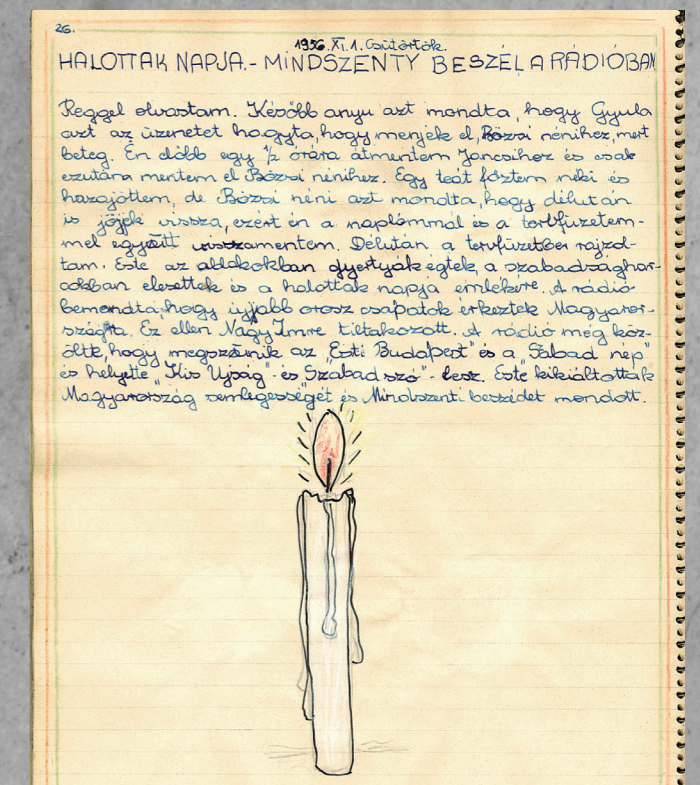 26.
1956. XI. 1. Csütörtök.
HALOTTAK NAPJA. - MINDSZENTY BESZÉL A RÁDIÓBAN
Reggel olvastam. Később anyu azt mondta, hogy Gyula
azt az üzenetet hagyta, hogy menjek el, Bözsi nénihez, mert
beteg. Én előbb egy ½ órára átmentem Jancsihoz és csak
ezután mentem el Bözsi nénihez. Egy teát főztem néki és
hazajöttem, de Bözsi néni azt mondta, hogy délután
is jöjek vissza, ezért én a naplómmal és a tervfüzetem-
mel együtt visszamentem. Délután a tervfüzetbe rajzol-
tam. Este az ablakokban gyertyák égtek, a szabadsághar-
cokban elesettek és a halottak napja emlékére. A rádió
bemondta, hogy újjabb orosz csapatok érkeztek Magyaror-
szágra. Ez ellen Nagy Imre tiltakozott. A rádió még köz-
ölte, hogy megszűnik az "Esti Budapest" és a "Szabad nép"
és helyette "Kis Ujság" - és "Szabad szó" - lesz. Este kikiáltották
Magyarország semlegességét és Mindszenti beszédet mondott.